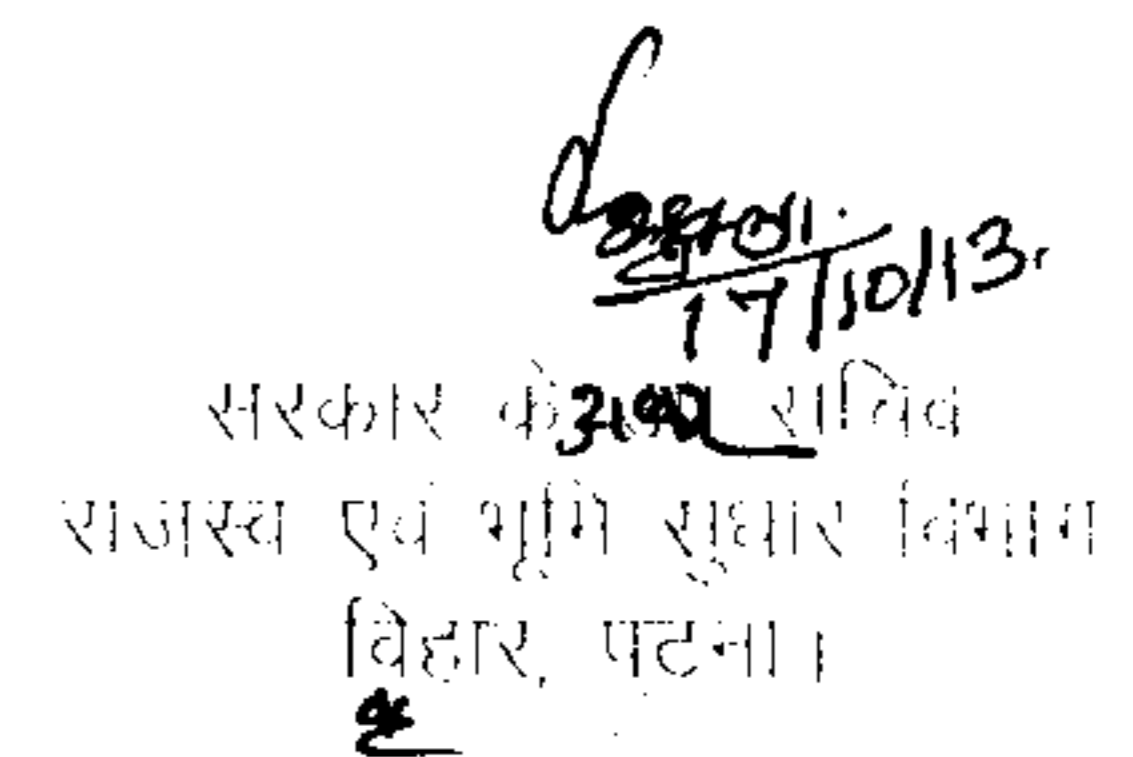 17/10/13.
सरकार के अपर सचिव
राजस्व एवं भूमि सुधार विभाग
बिहार, पटना।